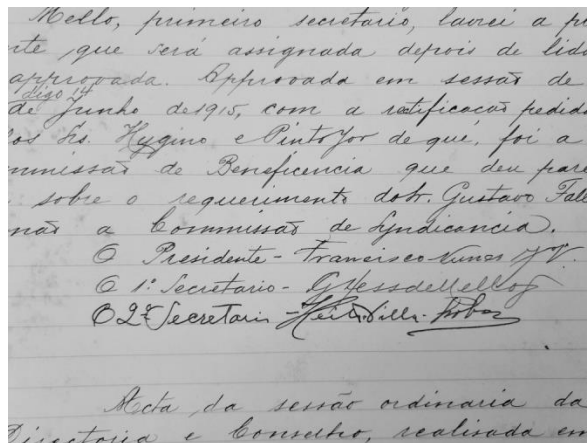 Mello, primeiro secretario, lavrei a
nte que será assignada depois de lida
approvada. Approvada em sessão de
digo 14
de Junho de 1915, com a ratificação pedida
los Srs. Hygino e Pinto Jor de que, foi a
mmissão de Beneficencia que deu pare
sobre o requerimento do Sr. Gustavo
não a Commissão de Syndicancia.
O Presidente - Francisco Nunes Jr.
O 1º Secretario - G Hess de Mello
O 2º Secretario - Heitor Villa-Lobos
Acta da sessão ordinaria da
Directoria e Conselho, realisada em